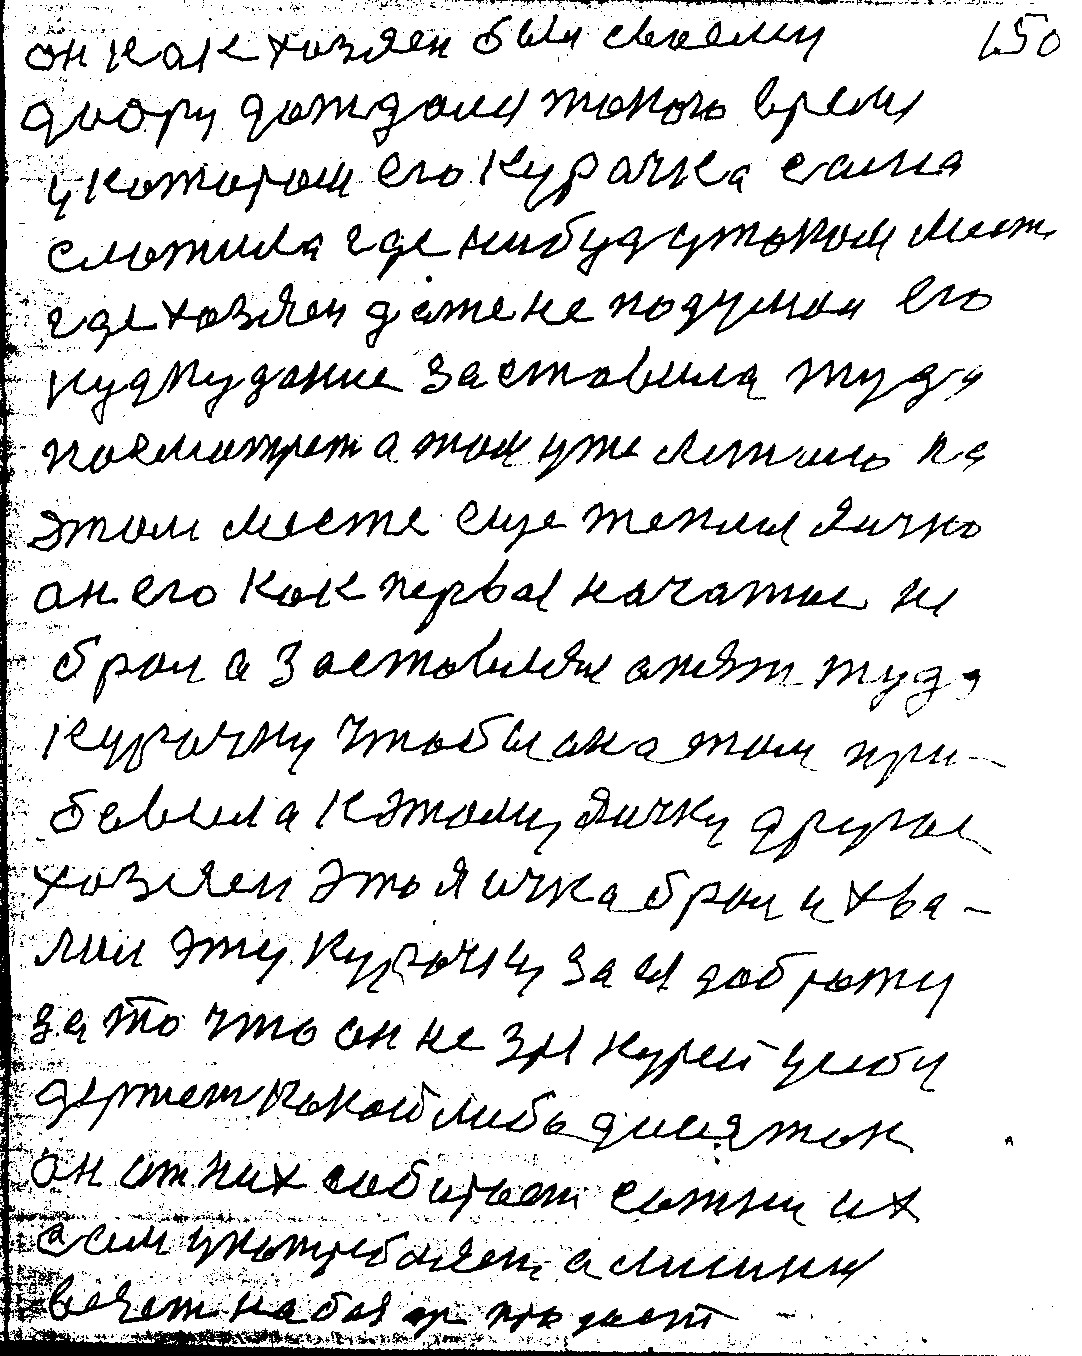 он как хозяен был своему 150
двору дождался токого время
у котором его курачка сама
сложила где нибуд у током мест
где хозяен даже не подумал его
кудкудание заставила туда
посмотрет а там уже лежало на
этом месте еще теплая яичко
он его как первая начатае не
брал а заставлял опят туда
курачку чтобы она там при-
бавила к этому яичку другое
хозяен это яичка брал и хва-
лил эту курачку за ея доброту
за то что он не зря курей у себя
держет какой либо десяток
он от них собирает сотни их
а сам употребляет а лишния
везет на базар продает